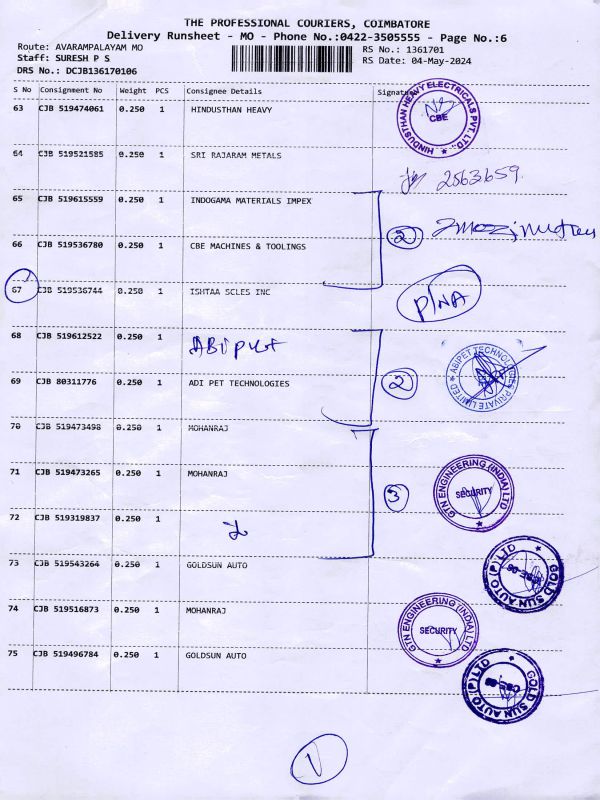 THE PROFESSIONAL COURIERS, COIMBATORE
Delivery Runsheet - MO - Phone No.:0422-3505555 - Page No.:6
Route: AVARAMPALAYAM MO RS No.: 1361701
Staff: SURESH P S RS Date: 04-May-2024
DRS No.: DCJB136170106
S No Consignment No Weight PCS Consignee Details Signature
63 CJB 519474061 0.250 1 HINDUSTHAN HEAVY
HINDUSTHAN HEAVY ELECTRICALS PVT. LTD. CBE
64 CJB 519521585 0.250 1 SRI RAJARAM METALS
2563659
65 CJB 519615559 0.250 1 INDOGAMA MATERIALS IMPEX
2
66 CJB 519536780 0.250 1 CBE MACHINES & TOOLINGS
67 CJB 519536744 0.250 1 ISHTAA SCLES INC
P/NA
68 CJB 519612522 0.250 1 ABIPET
ABIPET TECHNOLOGIES PRIVATE LIMITED
69 CJB 80311776 0.250 1 ADI PET TECHNOLOGIES
2
70 CJB 519473498 0.250 1 MOHANRAJ
71 CJB 519473265 0.250 1 MOHANRAJ
3
GTN ENGINEERING (INDIA) LTD SECURITY
72 CJB 519319837 0.250 1
73 CJB 519543264 0.250 1 GOLDSUN AUTO
GOLD SUN AUTO (P) LTD
74 CJB 519516873 0.250 1 MOHANRAJ
GTN ENGINEERING (INDIA) LTD SECURITY
75 CJB 519496784 0.250 1 GOLDSUN AUTO
GOLD SUN AUTO (P) LTD